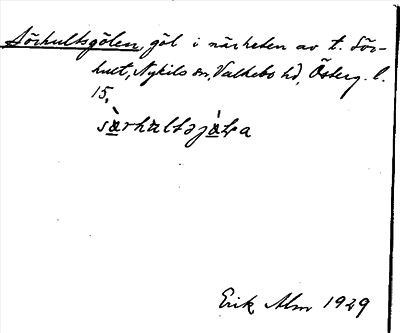 Sörhultsgölen, göl i närheten av t. Sör-
hult, Nykils sn, Valkebo hd, Österg. l.
15,
sàrhultsjàLa
Erik Alm 1929